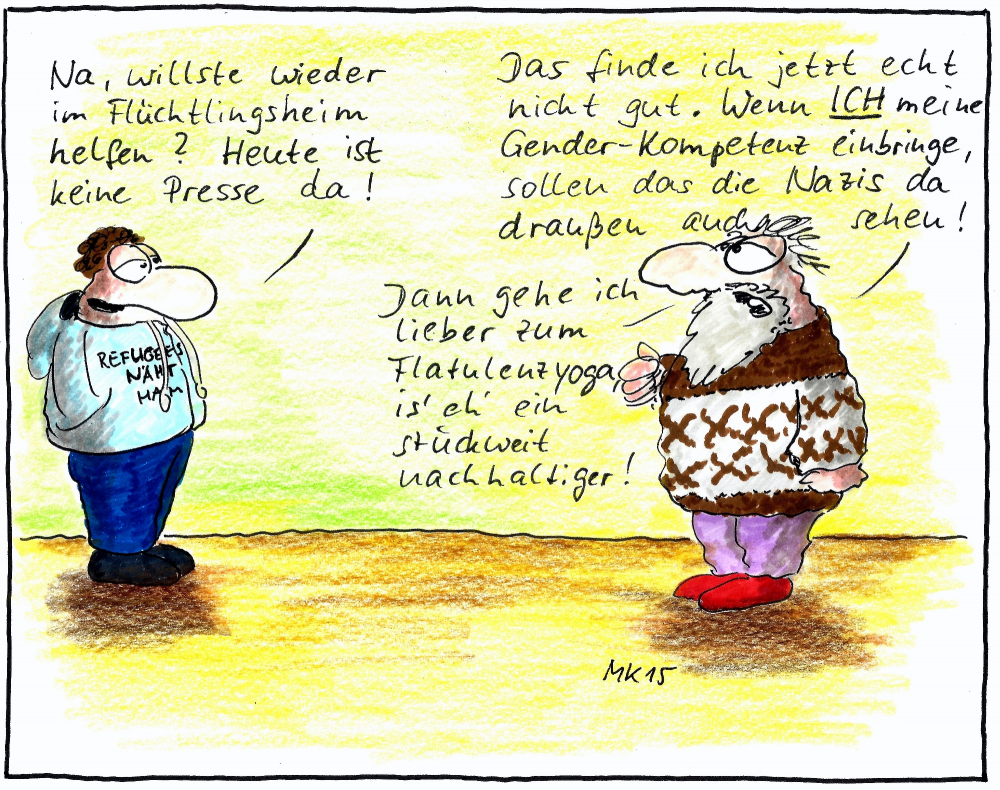 Na, willste wieder
im Flüchtlingsheim
helfen? Heute ist
keine Presse da!
Das finde ich jetzt echt
nicht gut. Wenn ICH meine
Gender-Kompetenz einbringe,
sollen das die Nazis da
draußen auch sehen!
Dann gehe ich
lieber zum
Flatulenzyoga,
is' eh' ein
stückweit
nachhaltiger!
REFUGEES
NÄHT
MK15